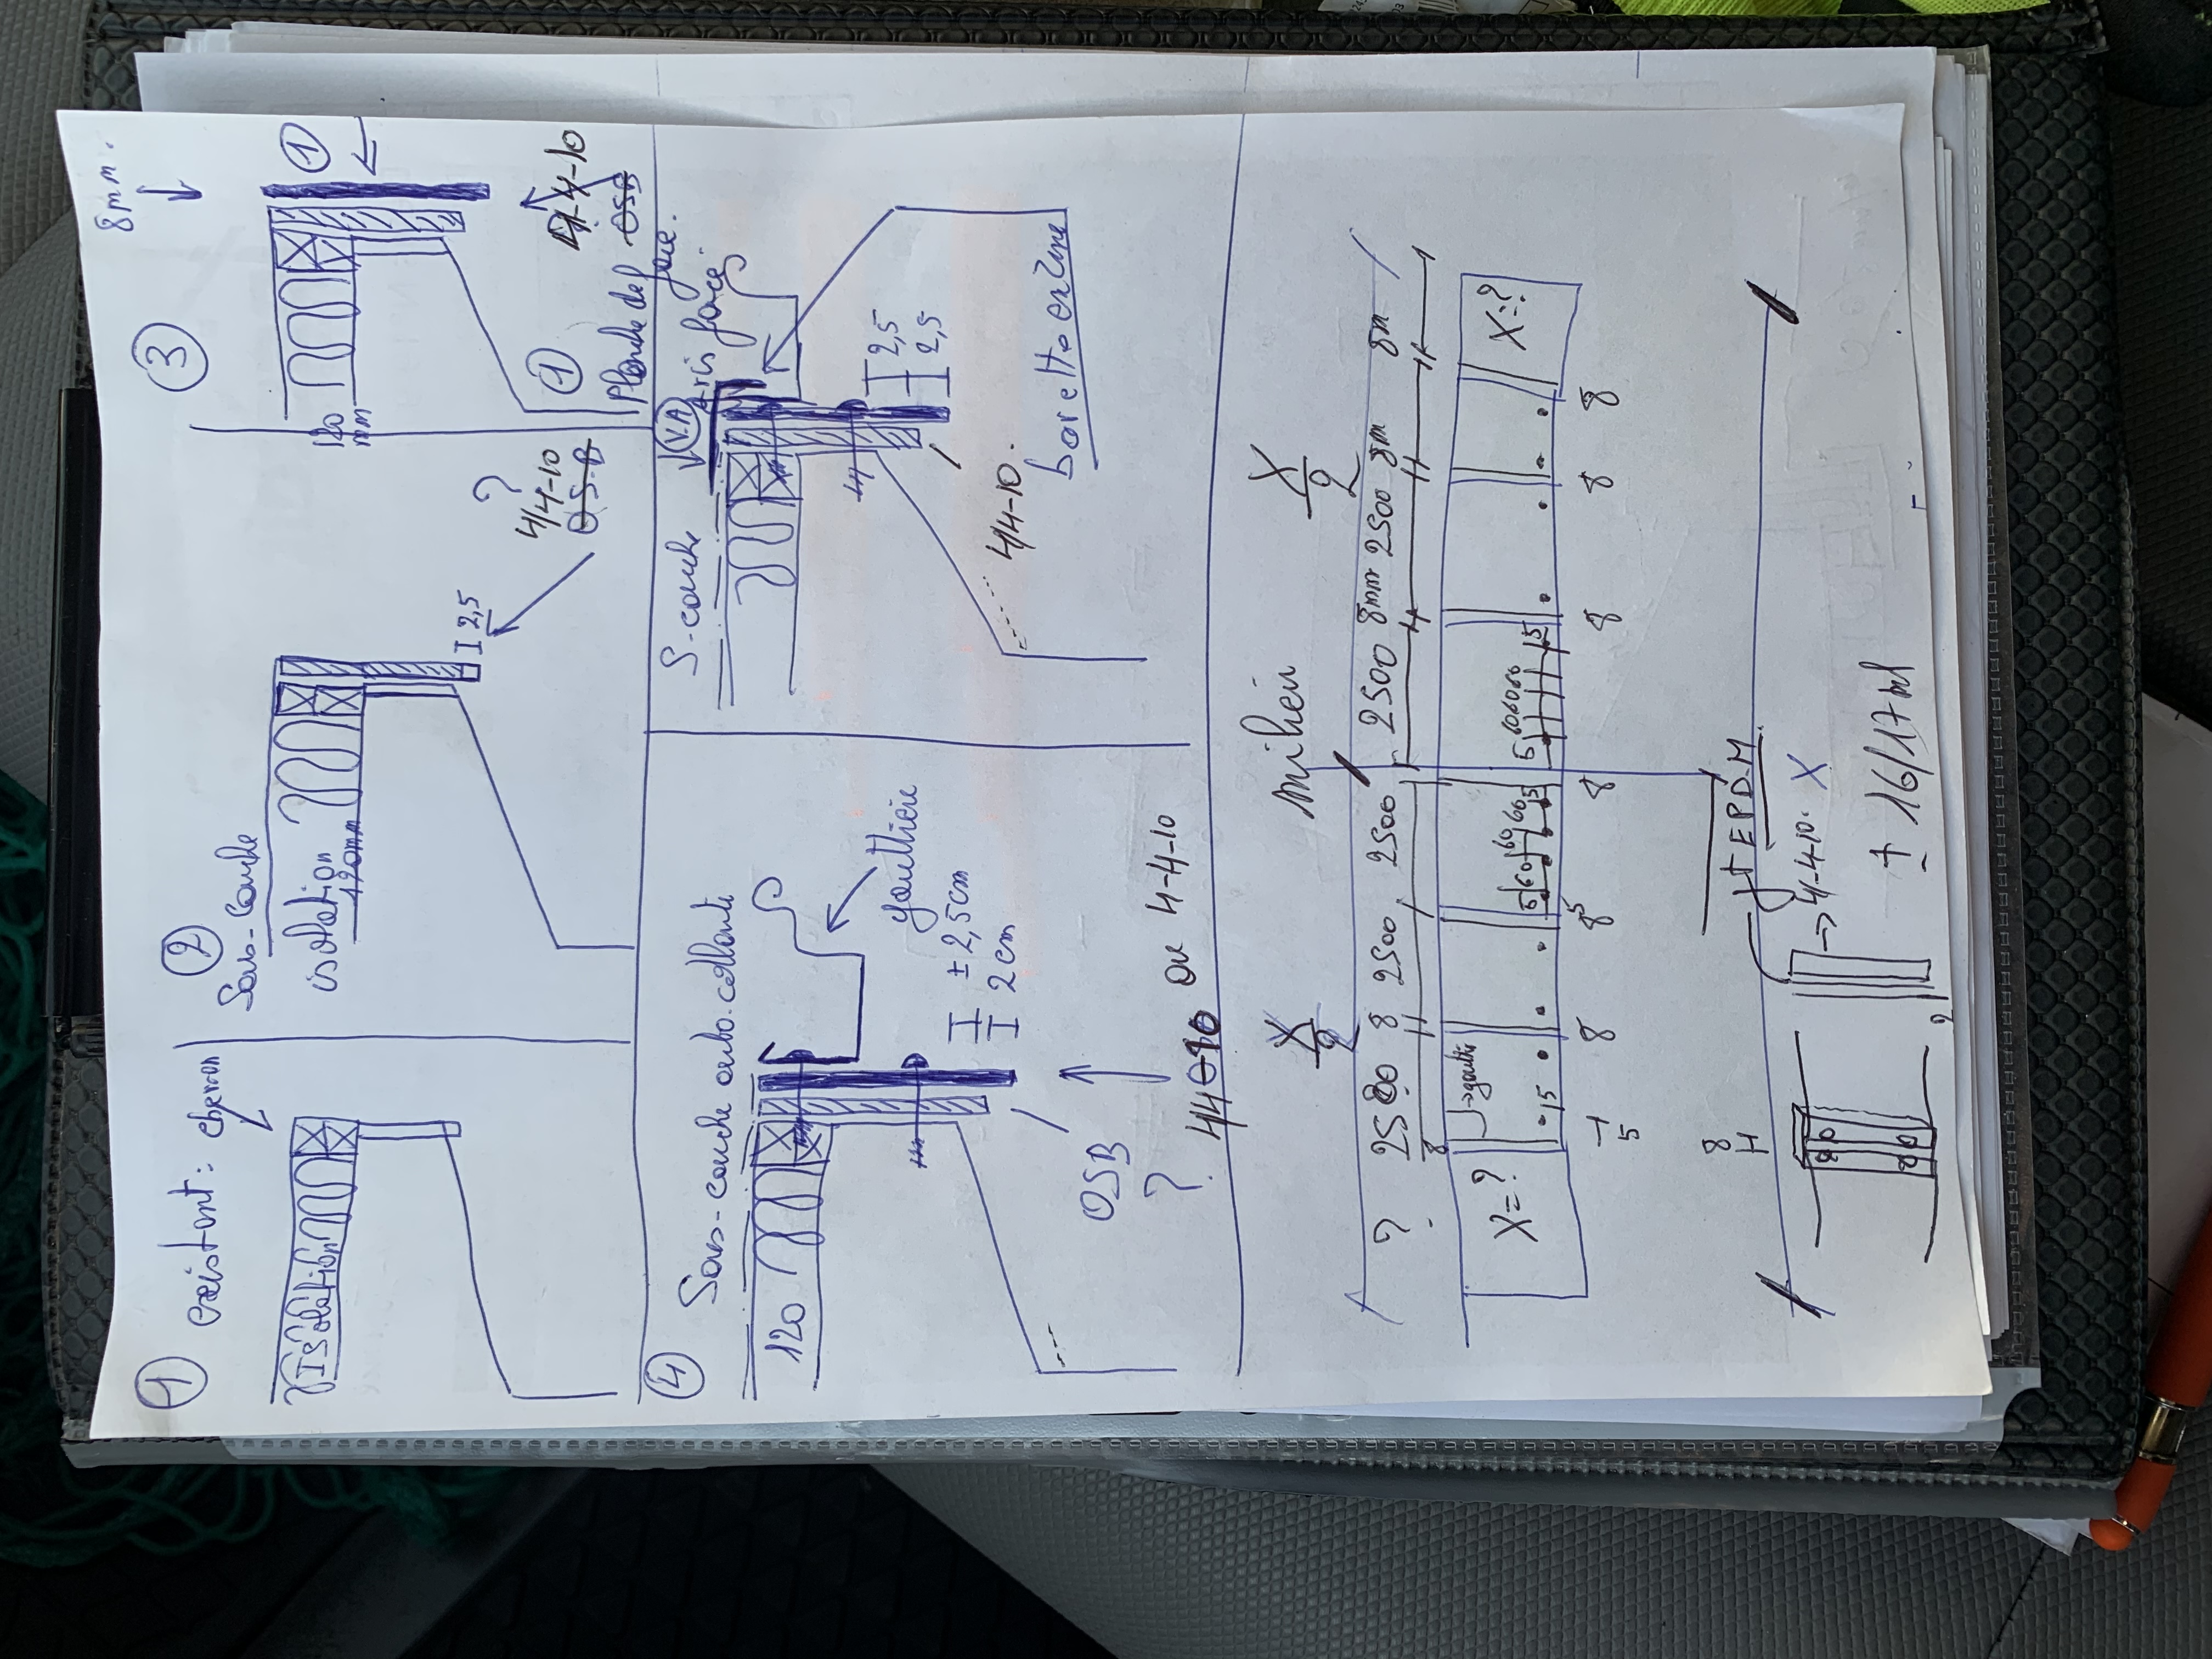 ① existant: chevron
ISolation
②
Sous-couche
isolation
120mm
I 2,5
?
4/4-10
O-S-B
③
8mm.
①
120
mm
4-4-10
OSB
①
Planche de face.
④ Sous-couche auto-collante
120
gouttière
± 2,5cm
2 cm
OSB
?
ou 4-4-10
S-couche
V.A
2,5
2,5
4/4-10.
barette en zinc
X/2
milieu
X/2
? 2500 8 2500 2500 2500 8mm 2500 8m 8m
8
X=?
gouttière
15
5 60 60 60 5
5 60 60 60 5
X=?
5
8 8 8 8 8 8
8
EPDM
4-4-10. X
± 16/17ml